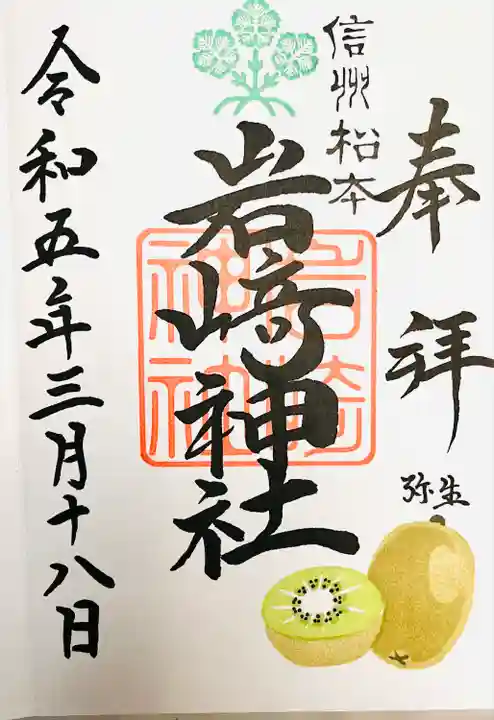 奉拝
弥生
信州松本
岩﨑神社
令和五年三月十八日